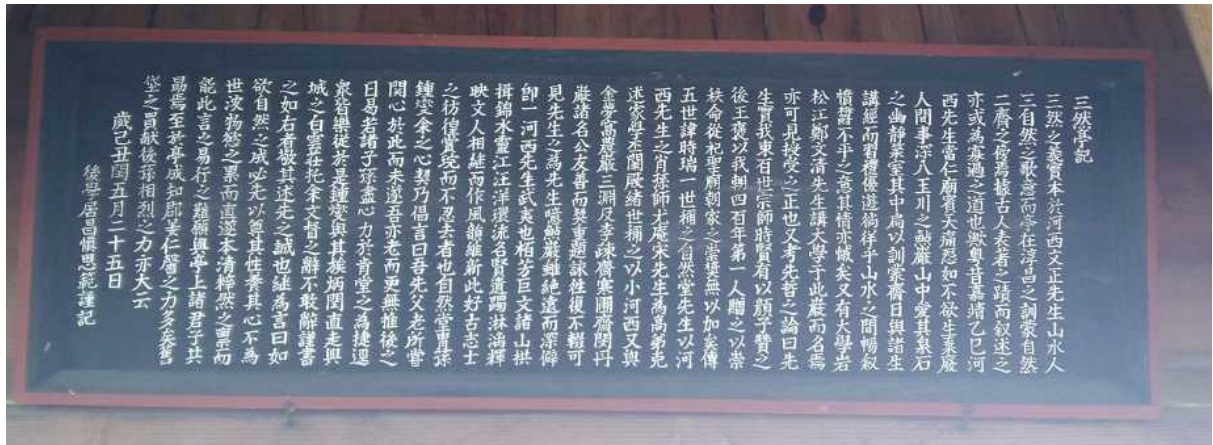 三然亭記
三然之義實本於河西文正先生山水人
三自然之歌意而亭在淳昌之訓蒙自然
二齋之傍爲據古人表者之蹟而叙述之
亦或爲寡過之道也歟粤昔嘉靖乙巳河
西先生當仁廟賓天痛怨如不欲生棄廢
人間事深入玉川之鮎巖山中愛其泉石
之幽靜築室其中扁以訓蒙齋日與諸生
講經而習禮優遊徜徉乎山水之間暢叙
憤鬱不平之意其情亦慽矣又有大學岩
松江鄭文清先生講大學于此巖而名焉
亦可見授受之正也又考先哲之論曰先
生實我東百世宗師時賢有以顔子贊之
後王褒以我朝四百年第一人贈之以崇
秩命從祀聖廟朝家之崇獎無以加矣傳
五世諱時瑞一世稱之自然堂先生以河
西先生之肖孫師尤庵宋先生爲高弟克
述家學丕闡厥緒世稱之以小河西又與
金夢窩農巖三淵及李疎齋寒圃齋閔丹
巖諸名公友善而契重題詠往復不輟可
見先生之爲先生噫鮎巖雖絶遠而深僻
卽一河西先生武夷也栢方巨文諸山拱
揖錦水靈江汪洋環流名賢遺躅淋漓輝
映文人相繼而作風韻維新此好古志士
之彷徨賞玩而不忍去者也自然堂胄孫
鍾燮余之心契乃倡言曰吾先父老所嘗
関心於此而未遂吾亦老而更無惟後之
日易老諸子孫盍心力於肯堂之爲捷逕
衆皆樂從於是鍾燮與其族炳閏直走與
城之白雲莊托余文督之辭不敢辭謹書
之如右者敬其述先之誠也継爲言曰如
欲自然之成必先以尊其性養其心不爲
世波物慾之累而直遂本清粹然之稟而
能此言之易行之難願與亭上諸君子共
勗焉至於亭成知郡姜仁馨之力多矣舊
垈之買献後孫相烈之力亦大云
歲己丑閏五月二十五日
後學居昌愼思範謹記